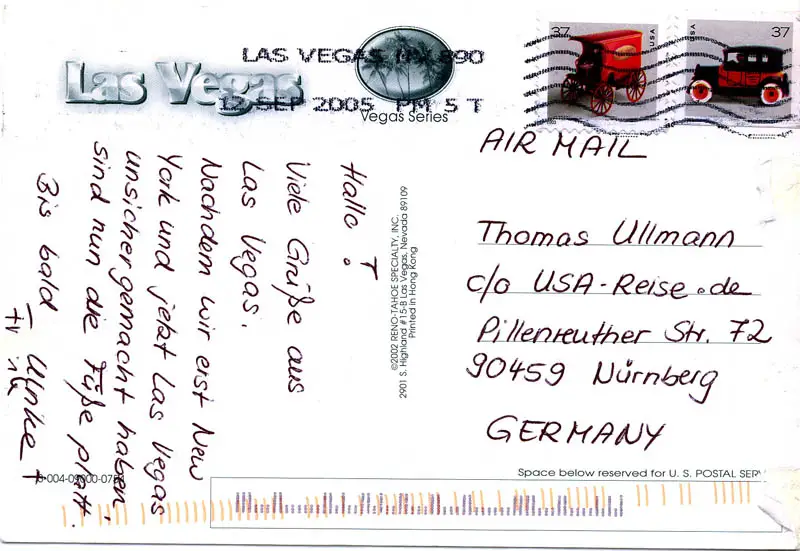 Las Vegas
Vegas Series
LAS VEGAS NV 890
12 SEP 2005 PM 5 T
37
USA
37
USA
AIR MAIL
Thomas Ullmann
c/o USA-Reise.de
Pillenreuther Str. 72
90459 Nürnberg
GERMANY
Hallo T
Viele Grüße aus
Las Vegas.
Nachdem wir erst New
York und jetzt Las Vegas
unsicher gemacht haben,
sind nun die Füße platt.
Bis bald
©2002 RENO-TAHOE SPECIALTY, INC.
2901 S. Highland #15-B Las Vegas, Nevada 89109
Printed in Hong Kong
Space below reserved for U. S. POSTAL SER